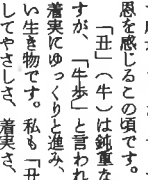 恩を感じるこの頃です。
「丑」（牛）は鈍重な
すが、「牛歩」と言われ
着実にゆっくりと進み、
い生き物です。私も「丑
してやさしさ、着実さ、